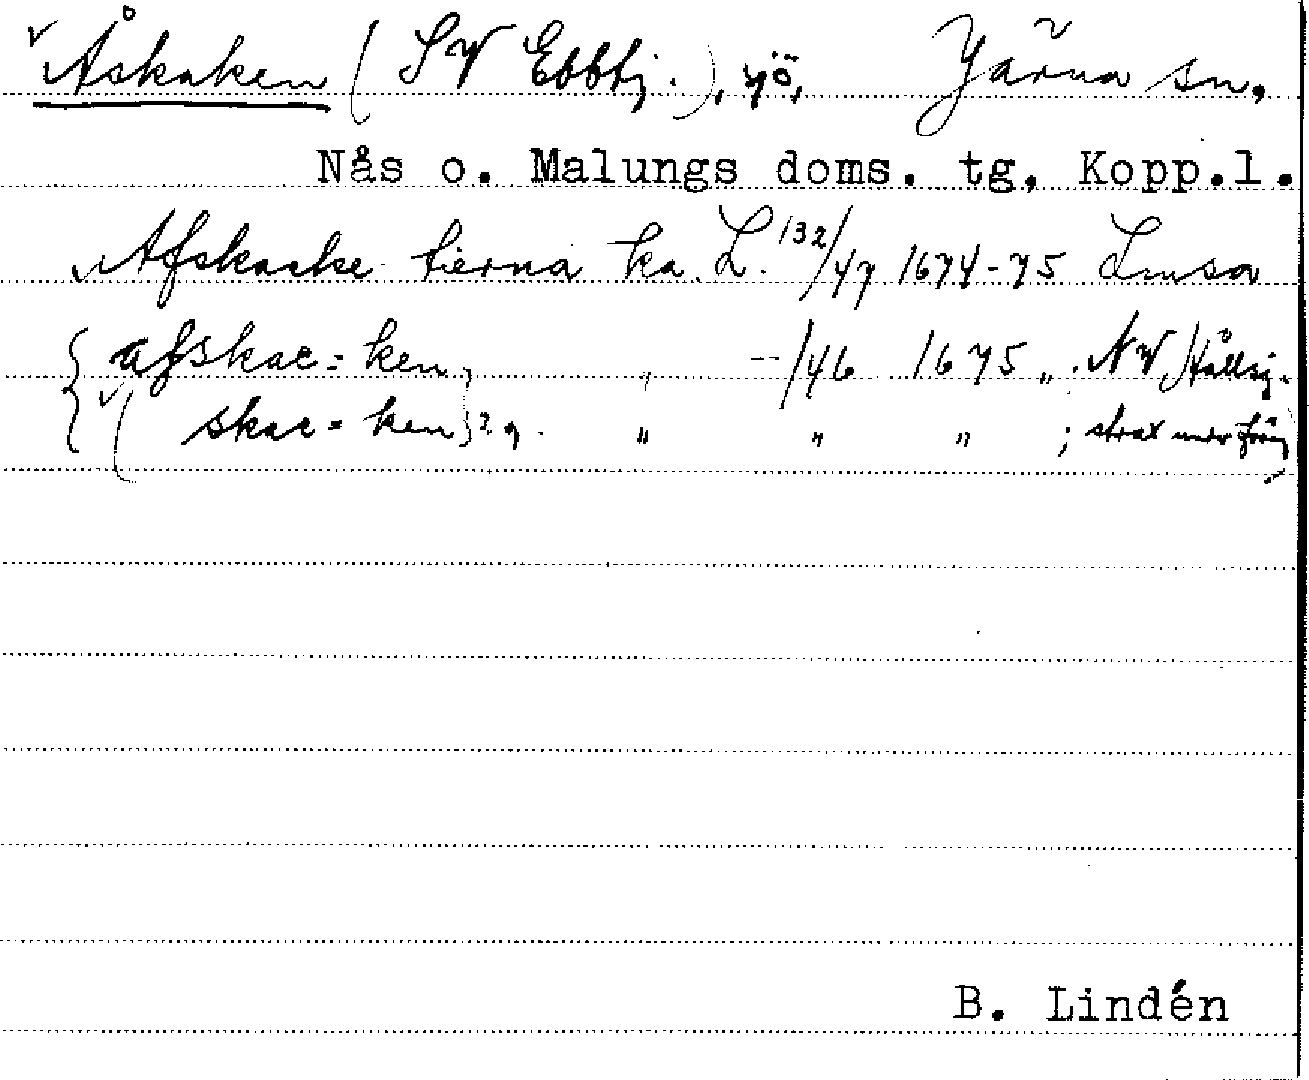 Åskaken (SV Ebbtj.), sjö, Järna sn.
Nås o. Malungs doms. tg. Kopp.l.
Afskacke tierna ka. L. 132/47 1674-75 Limsa
afskac=ken, " --/46 1675 ,, NV Hållsj.
( skac=ken)? g. " " " ; strax
B. Lindén